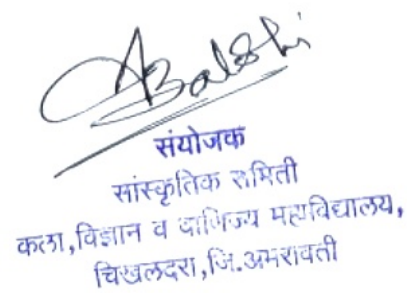 संयोजक
सांस्कृतिक समिती
कला,विज्ञान व वाणिज्य महाविद्यालय,
चिखलदरा,जि.अमरावती